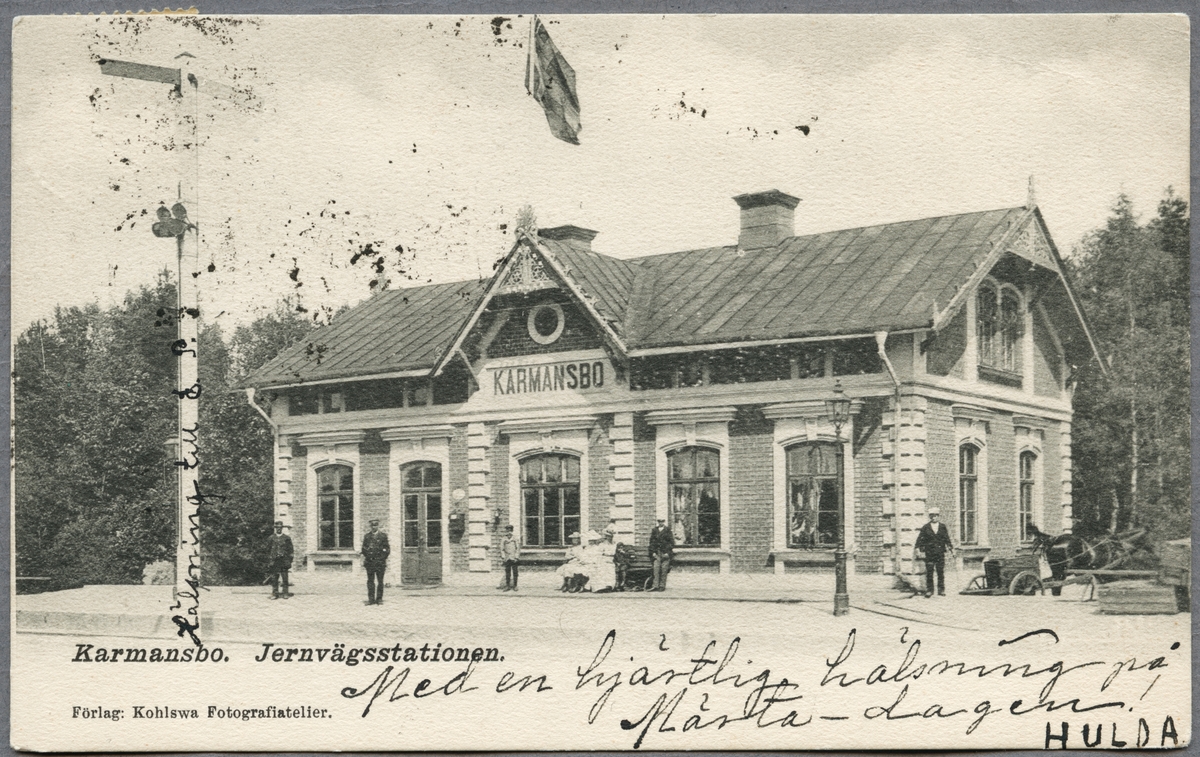 KARMANSBO
Hälsning till E. S.
Karmansbo. Jernvägsstationen.
Förlag: Kohlswa Fotografiatelier.
Med en hjärtlig hälsning på
Märta-dagen!
HULDA